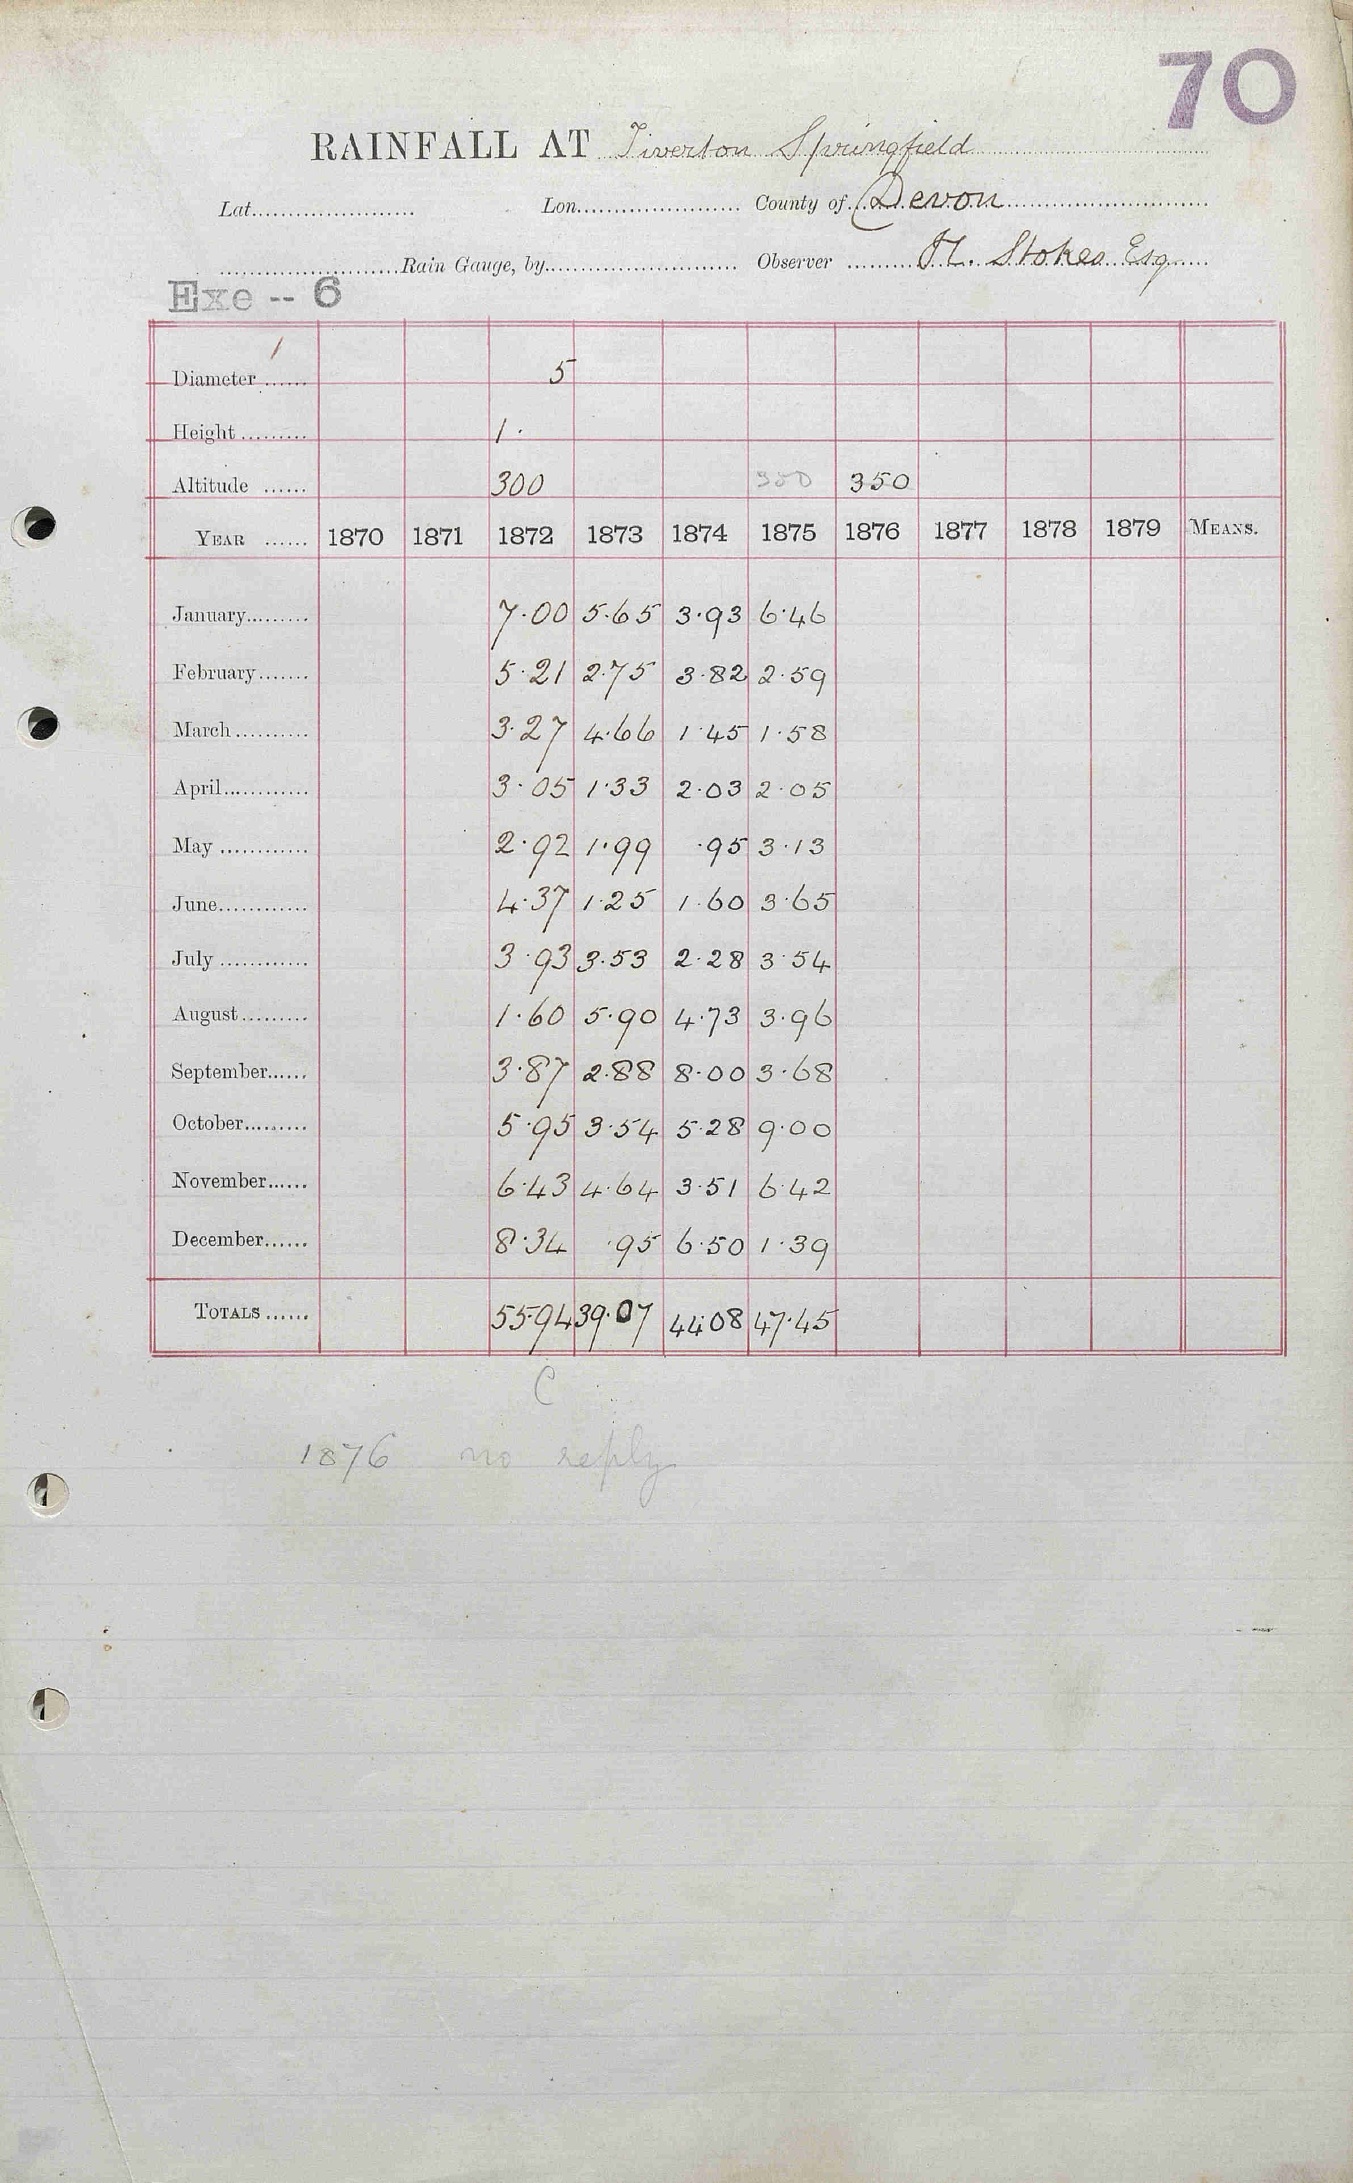 70
RAINFALL AT Tiverton Springfield
Lat........................ Lon........................ County of Devon
........................Rain Gauge, by........................ Observer H. Stokes Esq
Exe -- 6
Diameter ...... 5
Height ......... 1.
Altitude ...... 300 350 350
YEAR ...... 1870 1871 1872 1873 1874 1875 1876 1877 1878 1879 MEANS.
January......... 7.00 5.65 3.93 6.46
February....... 5.21 2.75 3.82 2.59
March.......... 3.27 4.66 1.45 1.58
April............ 3.05 1.33 2.03 2.05
May ............ 2.92 1.99 .95 3.13
June............ 4.37 1.25 1.60 3.65
July ............ 3.93 3.53 2.28 3.54
August......... 1.60 5.90 4.73 3.96
September...... 3.87 2.88 8.00 3.68
October......... 5.95 3.54 5.28 9.00
November...... 6.43 4.64 3.51 6.42
December...... 8.34 .95 6.50 1.39
TOTALS ...... 55.94 39.07 44.08 47.45
C
1876 no reply